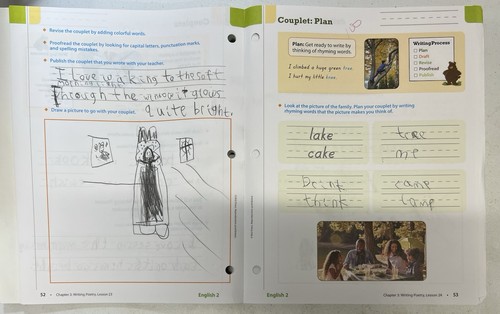 Revise the couplet by adding colorful words.
Proofread the couplet by looking for capital letters, punctuation marks,
and spelling mistakes.
Publish the couplet that you wrote with your teacher.
I love waking to the soft
morning
Through the window it glows
quite bright.
Draw a picture to go with your couplet.
52 • Chapter 3: Writing Poetry: Lesson 23
English 2
Couplet: Plan
Plan: Get ready to write by
thinking of rhyming words.
I climbed a huge green tree.
I hurt my little knee.
Writing Process
Plan
Draft
Revise
Proofread
Publish
Look at the picture of the family. Plan your couplet by writing
rhyming words that the picture makes you think of.
lake
cake
tree
me
Drink
think
camp
lamp
English 2
Chapter 3: Writing Poetry: Lesson 24 • 53